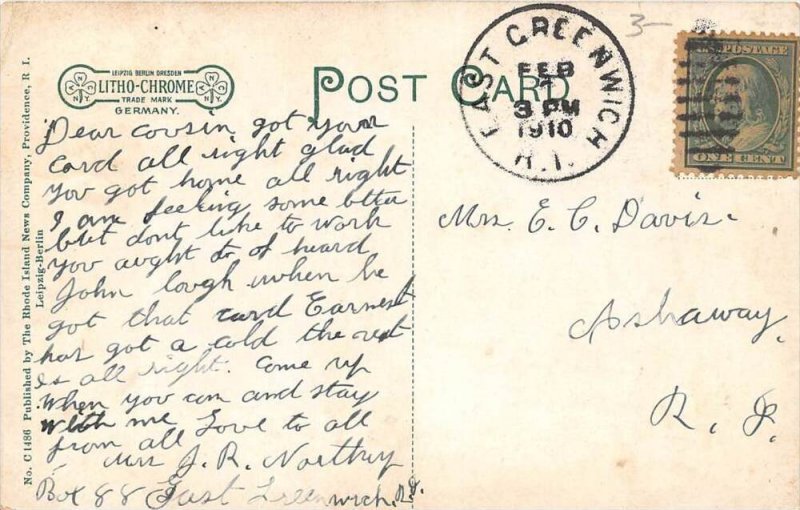 LEIPZIG BERLIN DRESDEN
LITHO-CHROME
TRADE MARK
GERMANY.
POST CARD
EAST GREENWICH
FEB
7
3 PM
1910
R.I.
3-
U.S. POSTAGE
ONE CENT
No. C 1486 Published by The Rhode Island News Company, Providence, R. I.
Leipzig-Berlin
Dear cousin got your
card all right glad
you got home all right
I am feeling some better
but dont like to work
you aught to of heard
John laugh when he
got that card Earnest
has got a cold the rest
is all right. Come up
when you can and stay
with me Love to all
from all
Mrs J. R. Northup
Box 88 East Greenwich. R.I.
Mrs. E. C. Davis.
Ashaway,
R. I.